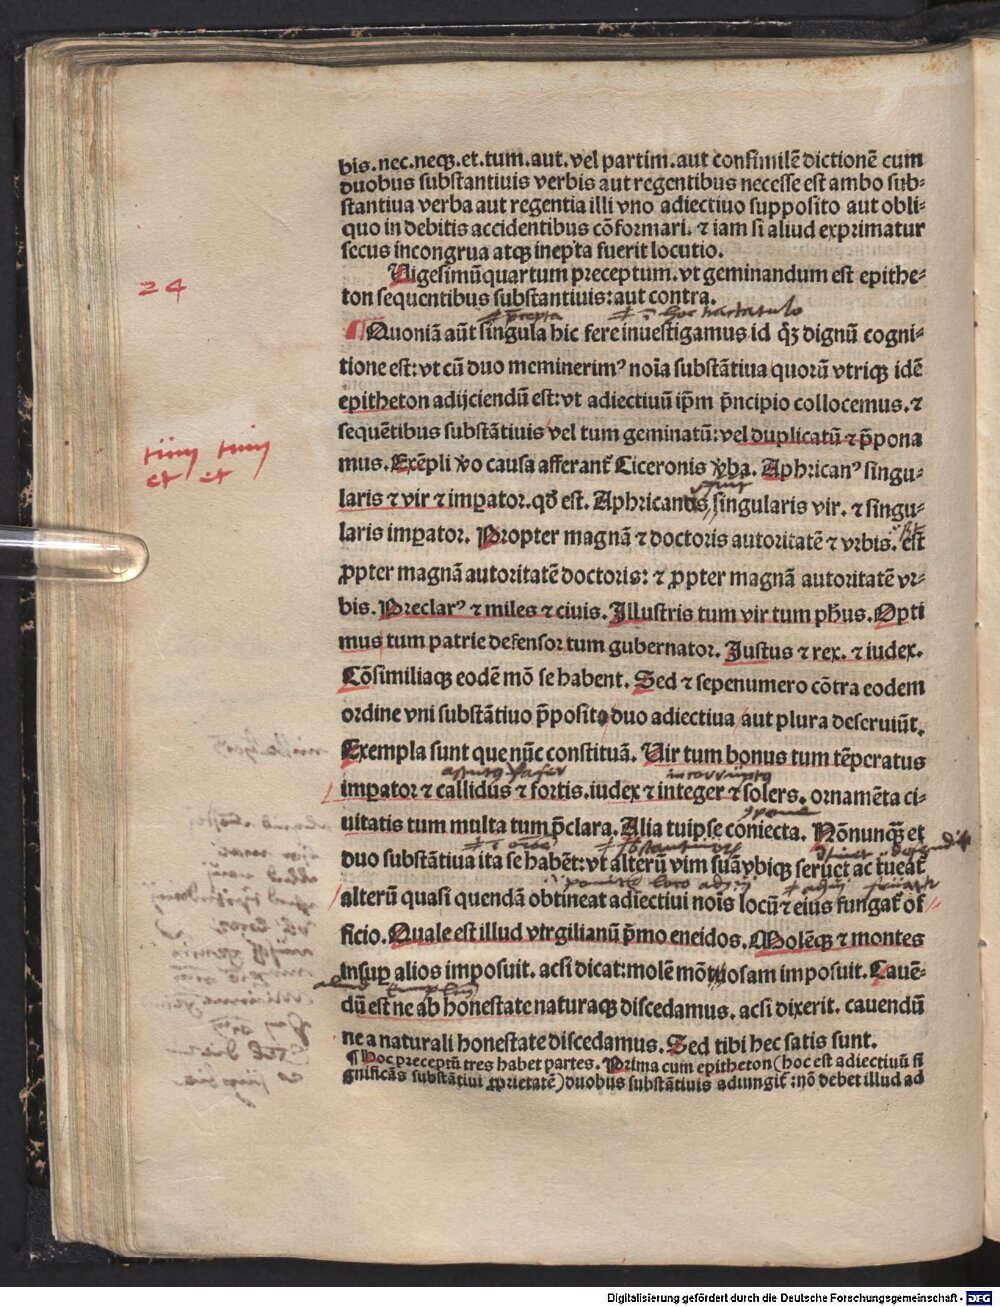 bis.nec.necꝫ.et.tum.aut.vel partim.aut consimilē dictionē cum
duobus substantiuis verbis aut regentibus necesse est ambo sub⸗
stantiua verba aut regentia illi vno adiectiuo supposito aut obli⸗
quo in debitis accidentibus cōformari. ⁊ iam si aliud exprimatur
secus incongrua atqꝫ inepta fuerit locutio.
Uigesimūquartum preceptum. vt geminandum est epithe⸗
24
ton sequentibus substantiuis: aut contra.
p̄cepta
¶ Quoniā aūt singula hic fere inuestigamus id qꝫ dignū cogni⸗
tione est: vt cū duo meminerimꝰ noīa substātiua quorū vtriqꝫ idē
epitheton adijciendū est: vt adiectiuū ip̄m p̄ncipio collocemus. ⁊
sequētibus substātiuis vel tum geminatū: vel duplicatū ⁊ p̄pona
tum tum
et et
mus. Exēpli v̄o causa afferant̄ Ciceronis v̄ba. Aphricanꝰ singu⸗
laris ⁊ vir ⁊ imꝑator. qd̄ est. Aphricanus singularis vir. ⁊ singu⸗
laris imꝑator. Propter magnā ⁊ doctoris autoritatē ⁊ vrbis. est
ꝓpter magnā autoritatē doctoris: ⁊ ꝓpter magnā autoritatē vr⸗
bis. Preclarꝰ ⁊ miles ⁊ ciuis. Illustris tum vir tum ph̄us. Opti
mus tum patrie defensor tum gubernator. Justus ⁊ rex. ⁊ iudex.
Cōsimiliaqꝫ eodē mō se habent. Sed ⁊ sepenumero cōtra eodem
ordine vni substātiuo p̄posito duo adiectiua aut plura deseruiūt.
Exempla sunt que nūc constituā. Uir tum bonus tum tēperatus
imꝑator ⁊ callidus ⁊ fortis. iudex ⁊ integer ⁊ solers. ornamēta ci⸗
uitatis tum multa tum p̄clara. Alia tuipse coniecta. Nōnunqꝫ et
duo substātiua ita se habēt: vt alterū vim suā vbiqꝫ seruet ac tueat̄
alterū quasi quendā obtineat adiectiui noīs locū ⁊ eius fungat̄ of
ficio. Quale est illud virgilianū p̄mo eneidos. Molēqꝫ ⁊ montes
insuꝑ alios imposuit. acsi dicat: molē mōtuosam imposuit. Cauē⸗
dū est ne ab honestate naturaqꝫ discedamus. acsi dixerit. cauendū
ne a naturali honestate discedamus. Sed tibi hec satis sunt.
¶ Hoc preceptū tres habet partes. Prima cum epitheton (hoc est adiectiuū si
gnificās substātiui ꝓprietatē) duobus substātiuis adiungit̄: nō debet illud ad
Digitalisierung gefördert durch die Deutsche Forschungsgemeinschaft - DFG